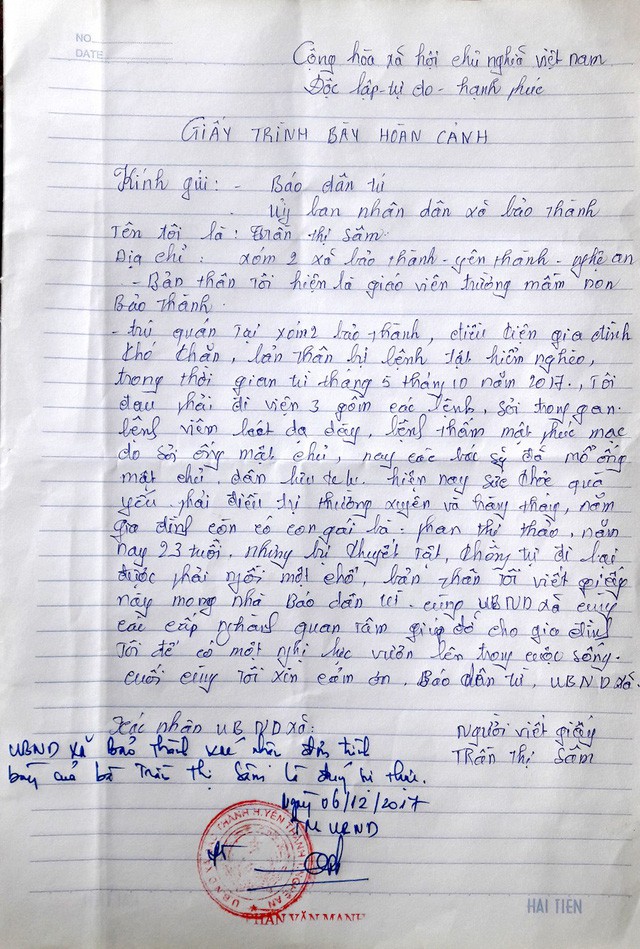 NO.
DATE
Cộng hòa xã hội chủ nghĩa việt nam
Độc lập - tự do - hạnh phúc
GIẤY TRÌNH BÀY HOÀN CẢNH
Kính gửi: - Báo dân trí
Ủy ban nhân dân xã bảo thành
Tên tôi là: Trần thị Sâm.
Địa chỉ: xóm 2 xã bảo thành - yên thành - nghệ an
- Bản thân tôi hiện là giáo viên trường mầm non
Bảo Thành.
- trú quán tại xóm 2 bảo thành, điều kiện gia đình
khó khăn, bản thân bị bệnh tật hiểm nghèo,
trong thời gian từ tháng 5 tháng 10 năm 2017., Tôi
đau phải đi viện 3 gồm các bệnh, sỏi trong gan.
bệnh viêm loét dạ dày, bệnh thấm mật phúc mạc
do sỏi ống mật chủ, nay các bác sỹ đã mổ ống
mật chủ. dẫn lưu hiện nay sức khỏe quá
yếu. phải điều trị thường xuyên và hàng tháng, năm
gia đình còn có con gái là: phan thị thảo, năm
nay 23 tuổi. nhưng bị khuyết tật, không tự đi lại
được phải ngồi một chỗ, bản thân tôi viết giấy
này mong nhà Báo dân trí. cùng UBND xã cùng
các cấp nghành quan tâm giúp đỡ cho gia đình
Tôi để có một nghị lực vươn lên trong cuộc sống.
cuối cùng tôi xin cảm ơn, Báo dân trí, UBND xã.
Xác nhận UBND xã:
Người viết giấy
Trần thị Sâm
UBND xã Bảo Thành xác nhận đơn trình
bày của bà Trần Thị Sâm là đúng sự thực.
Ngày 06/12/2017
TM UBND
PHAN VĂN MẠNH
HẢI TIẾN